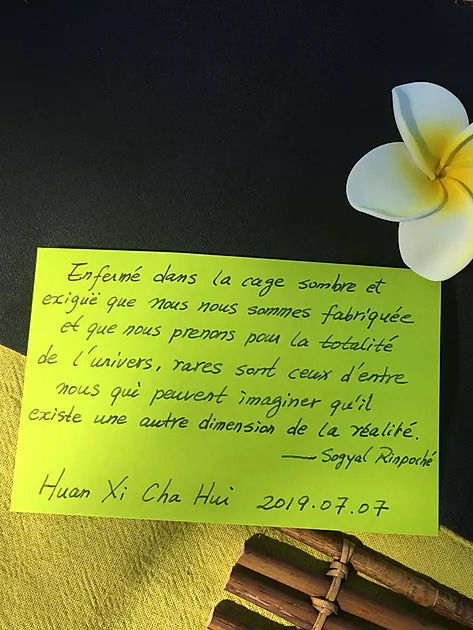 Enfermé dans la cage sombre et
exiguë que nous nous sommes fabriquée
et que nous prenons pour la totalité
de l'univers, rares sont ceux d'entre
nous qui peuvent imaginer qu'il
existe une autre dimension de la réalité.
— Sogyal Rinpoché
Huan Xi Cha Hui 2019.07.07